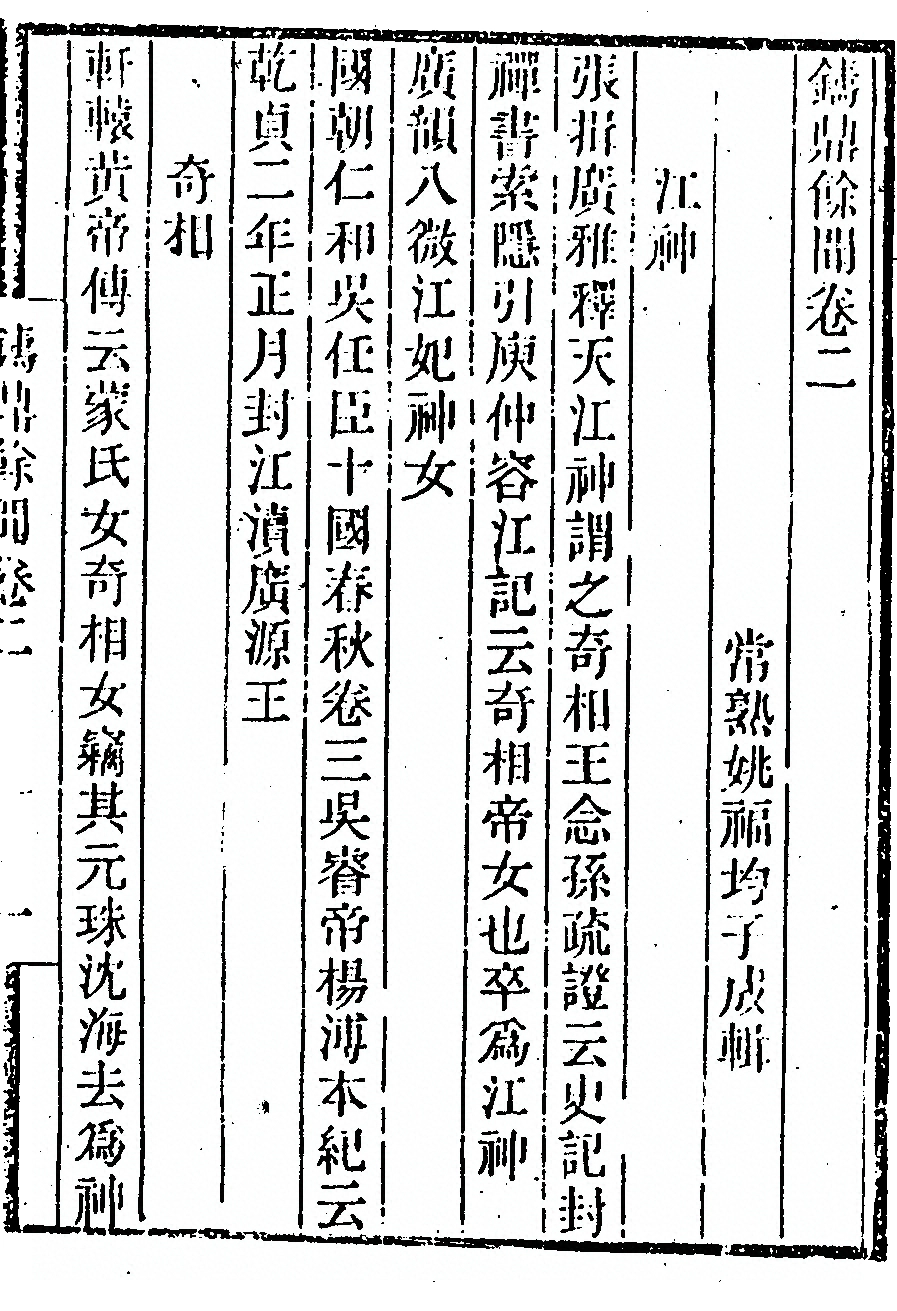 鑄鼎餘聞卷二
常熟姚福均子成輯
江神
張揖廣雅釋天江神謂之奇相王念孫疏證云史記封
禪書索隱引庾仲容江記云奇相帝女也卒爲江神
廣韻八微江妃神女
國朝仁和吳任臣十國春秋卷三吳睿帝楊溥本紀云
乾貞二年正月封江瀆廣源王
奇相
軒轅黃帝傳云蒙氏女奇相女竊其元珠沈海去爲神
鑄鼎餘聞卷二
一